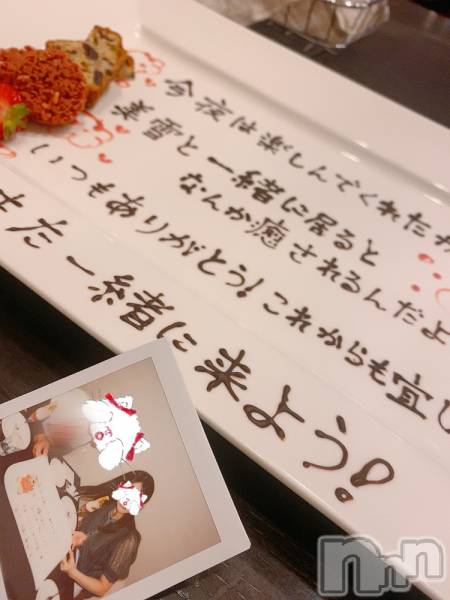 今夜は楽しんでくれたか
美雪と一緒に居ると
なんか癒されるんだよ
いつもありがとう!これからも宜し
また一緒に来よう!
nmn